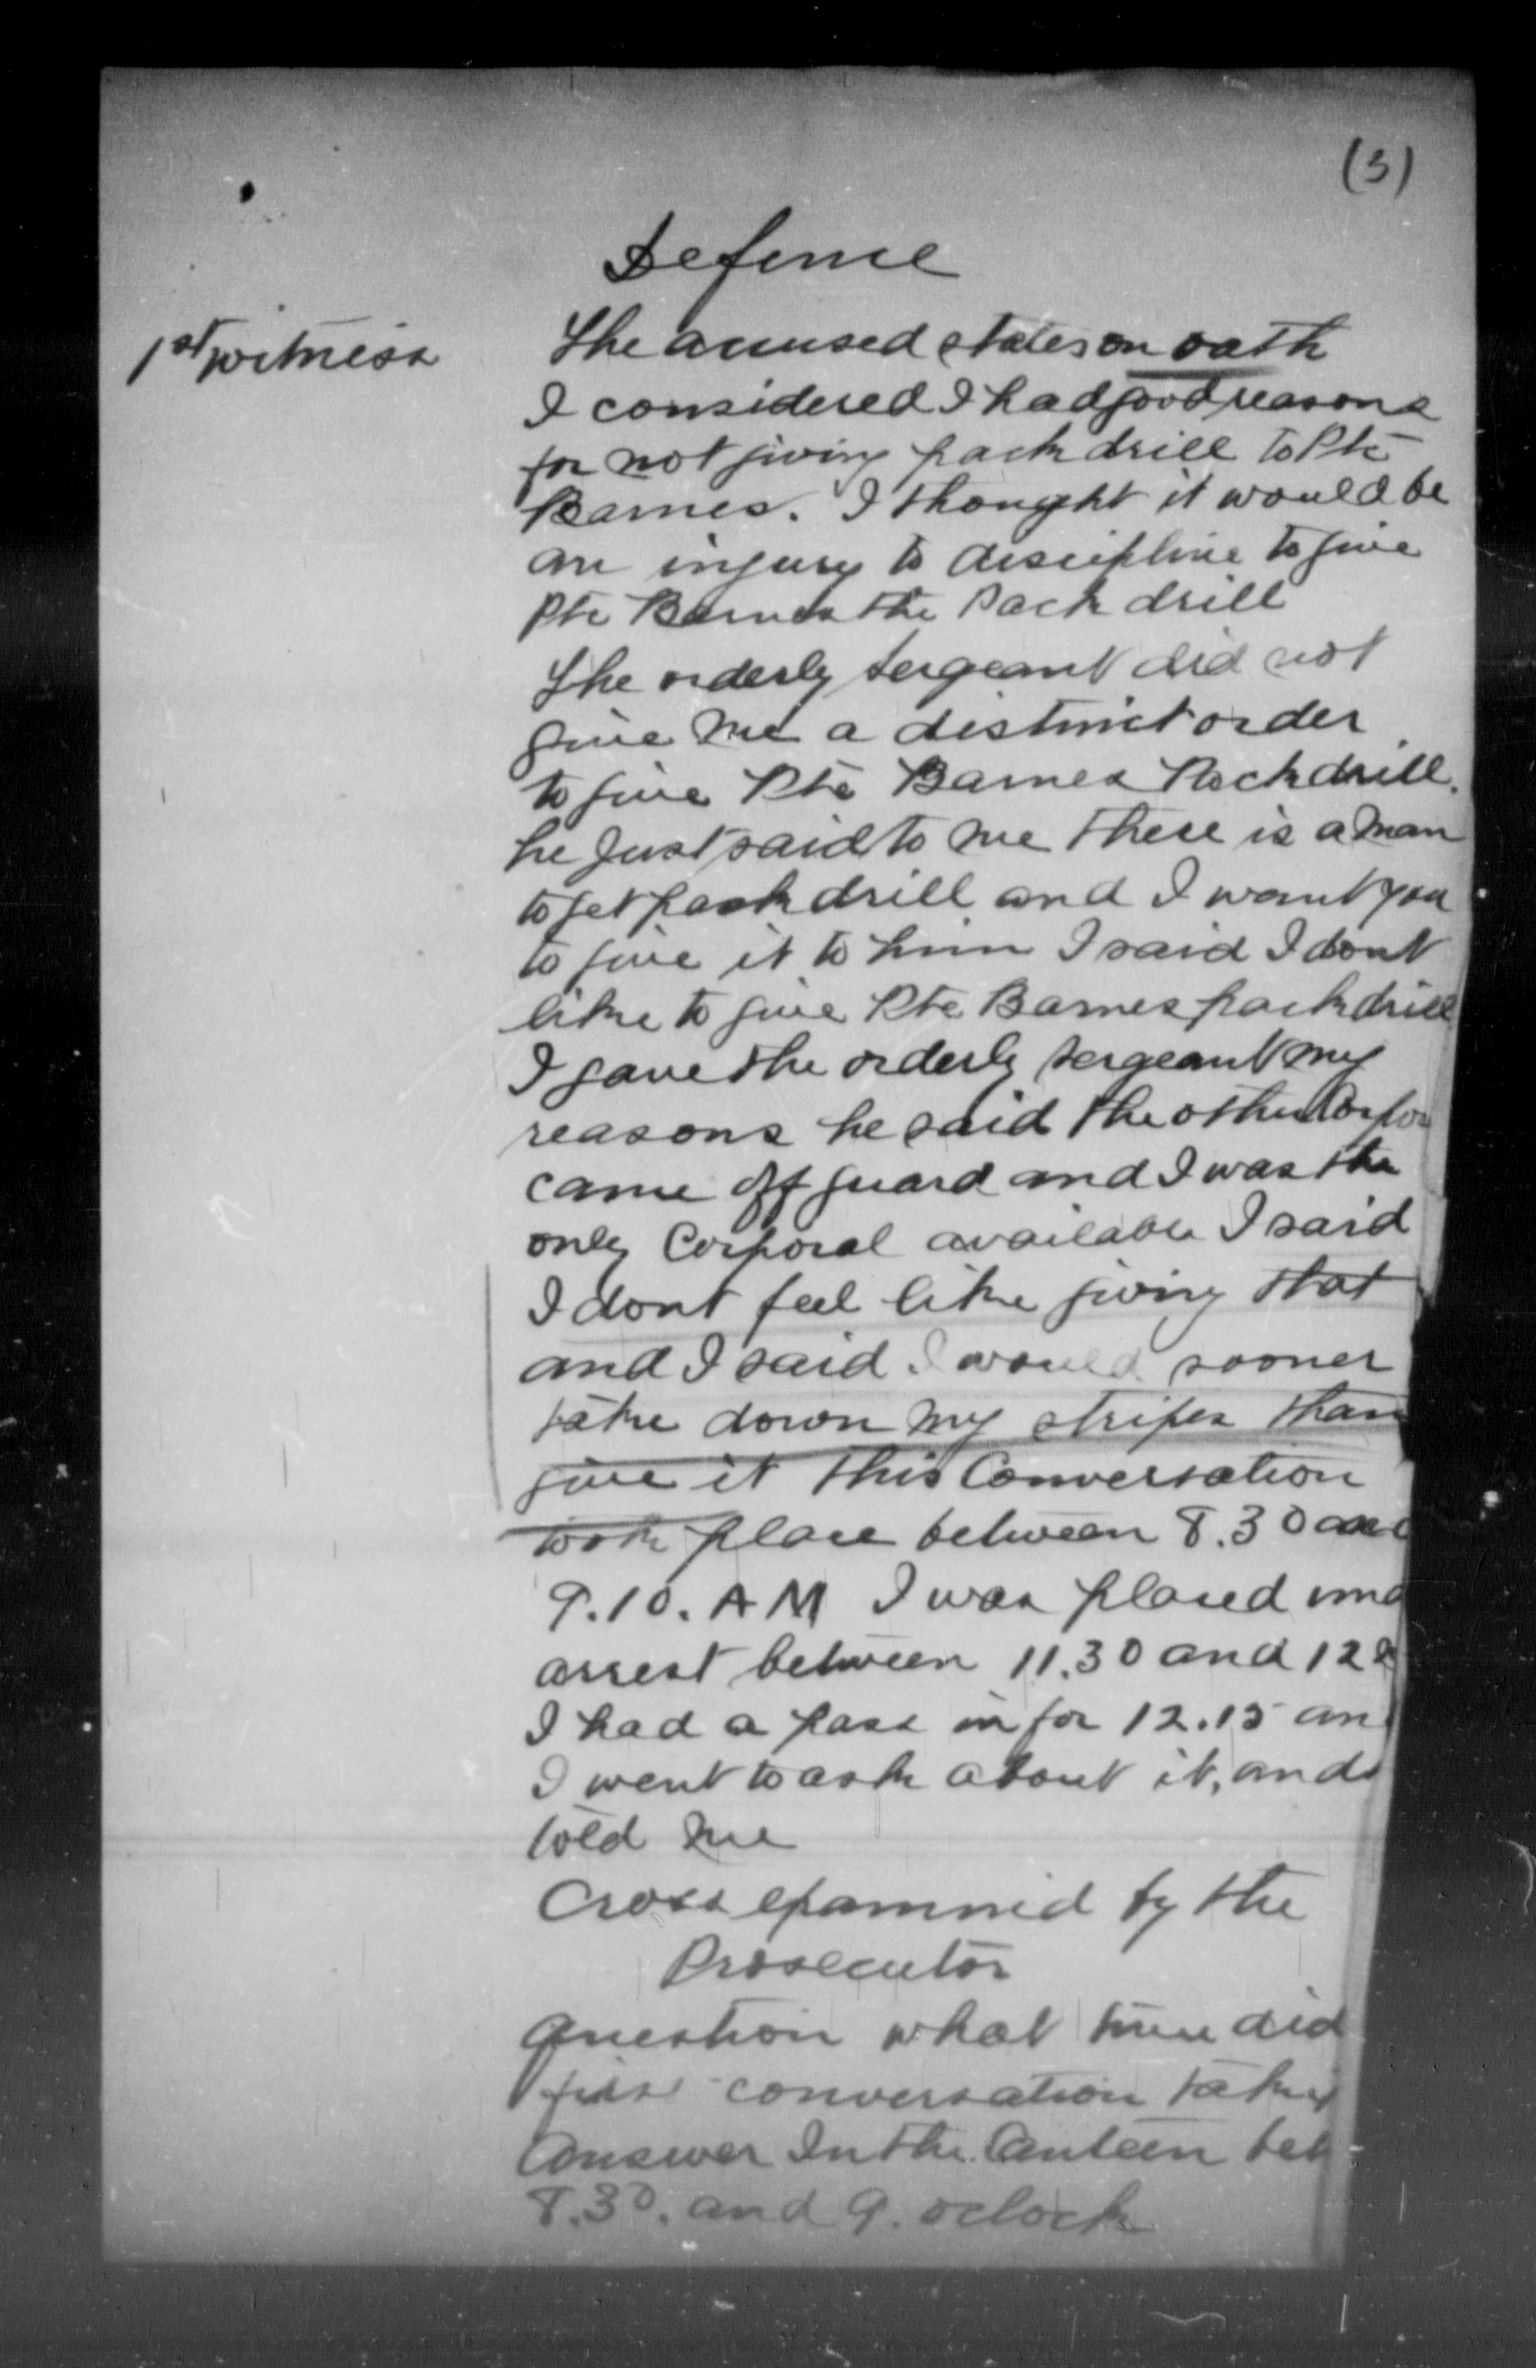 (3)
Defence
1st witness
The accused states on oath
I considered I had good reasons
for not giving pack drill to Pte
Barnes. I thought it would be
an injury to discipline to give
Pte Barnes the Pack drill
The orderly sergeant did not
give me a distinct order
to give Pte Barnes Pack drill.
he Just said to me there is a man
to get pack drill and I want you
to give it to him I said I dont
like to give Pte Barnes pack drill
I gave the orderly sergeant my
reasons he said the other Corpor
came off guard and I was the
only Corporal available I said
I dont feel like giving that
and I said I would sooner
take down my stripes than
give it this Conversation
took place between 8.30 and
9.10. AM I was placed und
arrest between 11.30 and 12
I had a pass in for 12.15 and
I went to ask about it, and
told me
Cross examined by the
Prosecutor
Question what time did
first conversation take
Answer In the Canteen bet
8.30. and 9. oclock